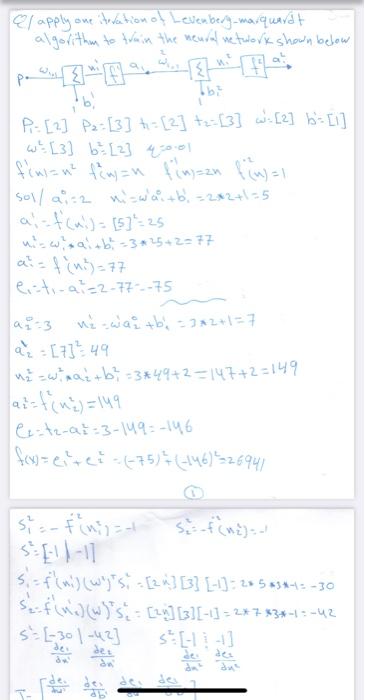 Q/ apply one iteration of Levenberg-marquardt
algorithm to train the neural network shown below
P w¹₁,₁ Σ n¹ f¹ a¹ w²₁,₁ Σ n² f² a²
b¹ b²
P₁=[2] P₂=[3] t₁=[2] t₂=[3] w¹=[2] b¹=[1]
w²=[3] b²=[2] =0.01
f¹(n)=n² f²(n)=n f˙¹(n)=2n f˙²(n)=1
sol/ a₁⁰=2 n₁¹=w¹a₁⁰+b¹=2*2+1=5
a₁¹=f¹(n₁¹)=[5]²=25
n₁²=w²*a₁¹+b²=3*25+2=77
a₁²=f²(n₁²)=77
e₁=t₁-a₁²=2-77=-75
a₂⁰=3 n₂¹=w¹a₂⁰+b¹=3*2+1=7
a₂¹=[7]²=49
n₂²=w²*a₂¹+b²=3*49+2=147+2=149
a₂²=f²(n₂²)=149
e₂=t₂-a₂²=3-149=-146
f(x)=e₁²+e₂²=(-75)²+(-146)²=26941
①
S₁²=-f˙²(n₁²)=-1 S₂²=-f˙²(n₂²)=-1
S²=[-1 | -1]
S₁¹=f˙¹(n₁¹)(w²)ᵀS₁²=[2n₁¹][3][-1]=2*5*3*-1=-30
S₂¹=f˙¹(n₂¹)(w)ᵀS₂²=[2n₂¹][3][-1]=2*7*3*-1=-42
S¹=[-30 | -42] S²=[-1 ⋮ -1]
de₁/dn¹ de₂/dn¹ de₁/dn² de₂/dn²
J= [de₁/dw¹ de₁/db¹ de₁ de₁